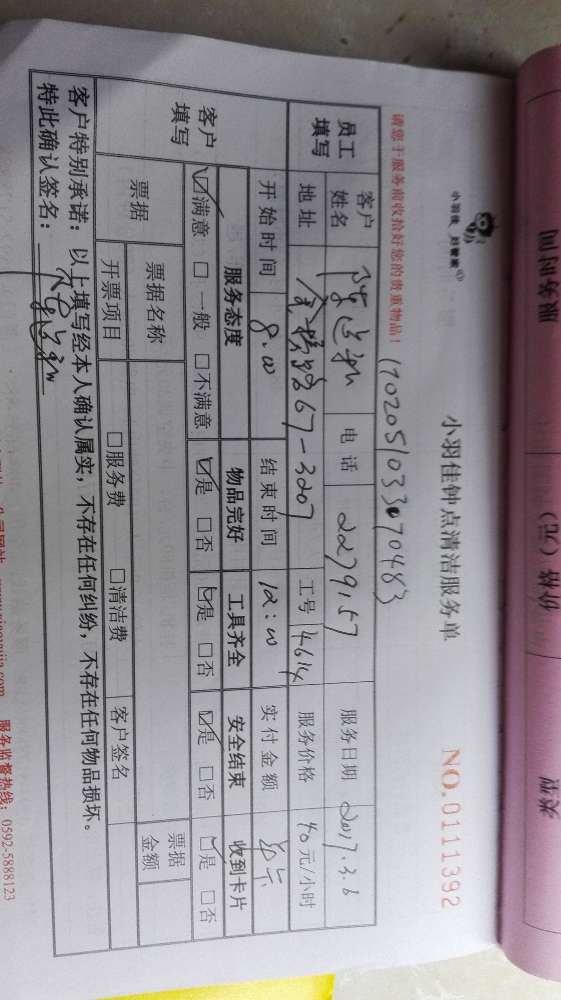 小羽佳钟点清洁服务单
NO.0111392
请您于服务前收拾好您的贵重物品!
员工填写 客户姓名 电话 2279157 服务日期 2017.3.6
地址 67-3207 工号 4614 服务价格 40元/小时
客户填写 开始时间 8:00 结束时间 12:00 实付金额
服务态度 物品完好 工具齐全 安全结束 收到卡片
☑满意 □一般 □不满意 ☑是 □否 ☑是 □否 ☑是 □否 ☑是 □否
票据 票据名称 票据金额
开票项目 □服务费 □清洁费 客户签名
客户特别承诺:以上填写经本人确认属实,不存在任何纠纷,不存在任何物品损坏。
特此确认签名:
服务监督热线:0592-5888123
服务时间
价格(元)
类型